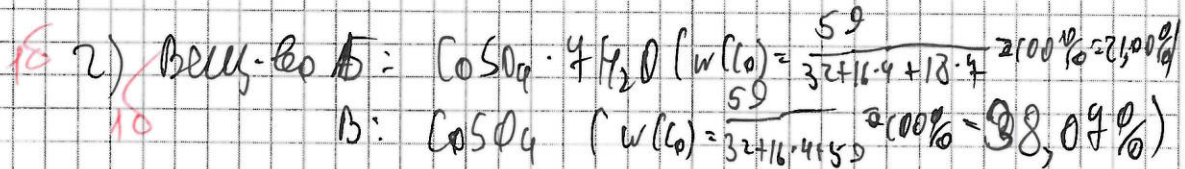 1б 2) Вещ-во Б: CoSO₄ · 7H₂O (w(Co) = 59/(32+16·4+18·7) · 100% = 21,00%)
1б В: CoSO₄ (w(Co) = 59/(32+16·4+59) · 100% = 38,07%)